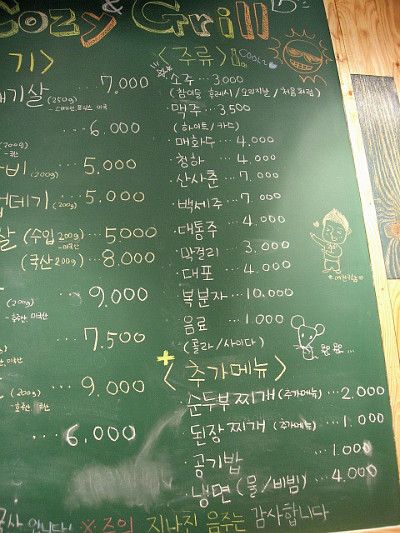 Cozy & Grill
기>
<주류>
cool~
소주 ... 3,000
(참이슬 후레시/오리지날/처음처럼)
맥주 ... 3,500
(하이트/카드)
매화수 ... 4,000
청하 ... 4,000
산사춘 ... 7,000
백세주 ... 7,000
대통주 ... 4,000
막걸리 ... 3,000
대포 ... 4,000
복분자 ... 10,000
음료 ... 1,000
(콜라/사이다)
기살 (250g) 7,000
... 6,000
(200g)
비 (200g) ... 5,000
데기 (200g) ... 5,000
살 (수입 200g) ... 5,000
(국산 200g) ... 8,000
... 9,000
(200g)
... 7,500
(200g) ... 9,000
... 6,000
+ <추가메뉴>
순두부찌개 (추가메뉴) ... 2,000
된장찌개 (추가메뉴) ... 1,000
공기밥 ... 1,000
냉면 (물/비빔) ... 4,000
입니다! ※주의 지나친 음주는 감사합니다